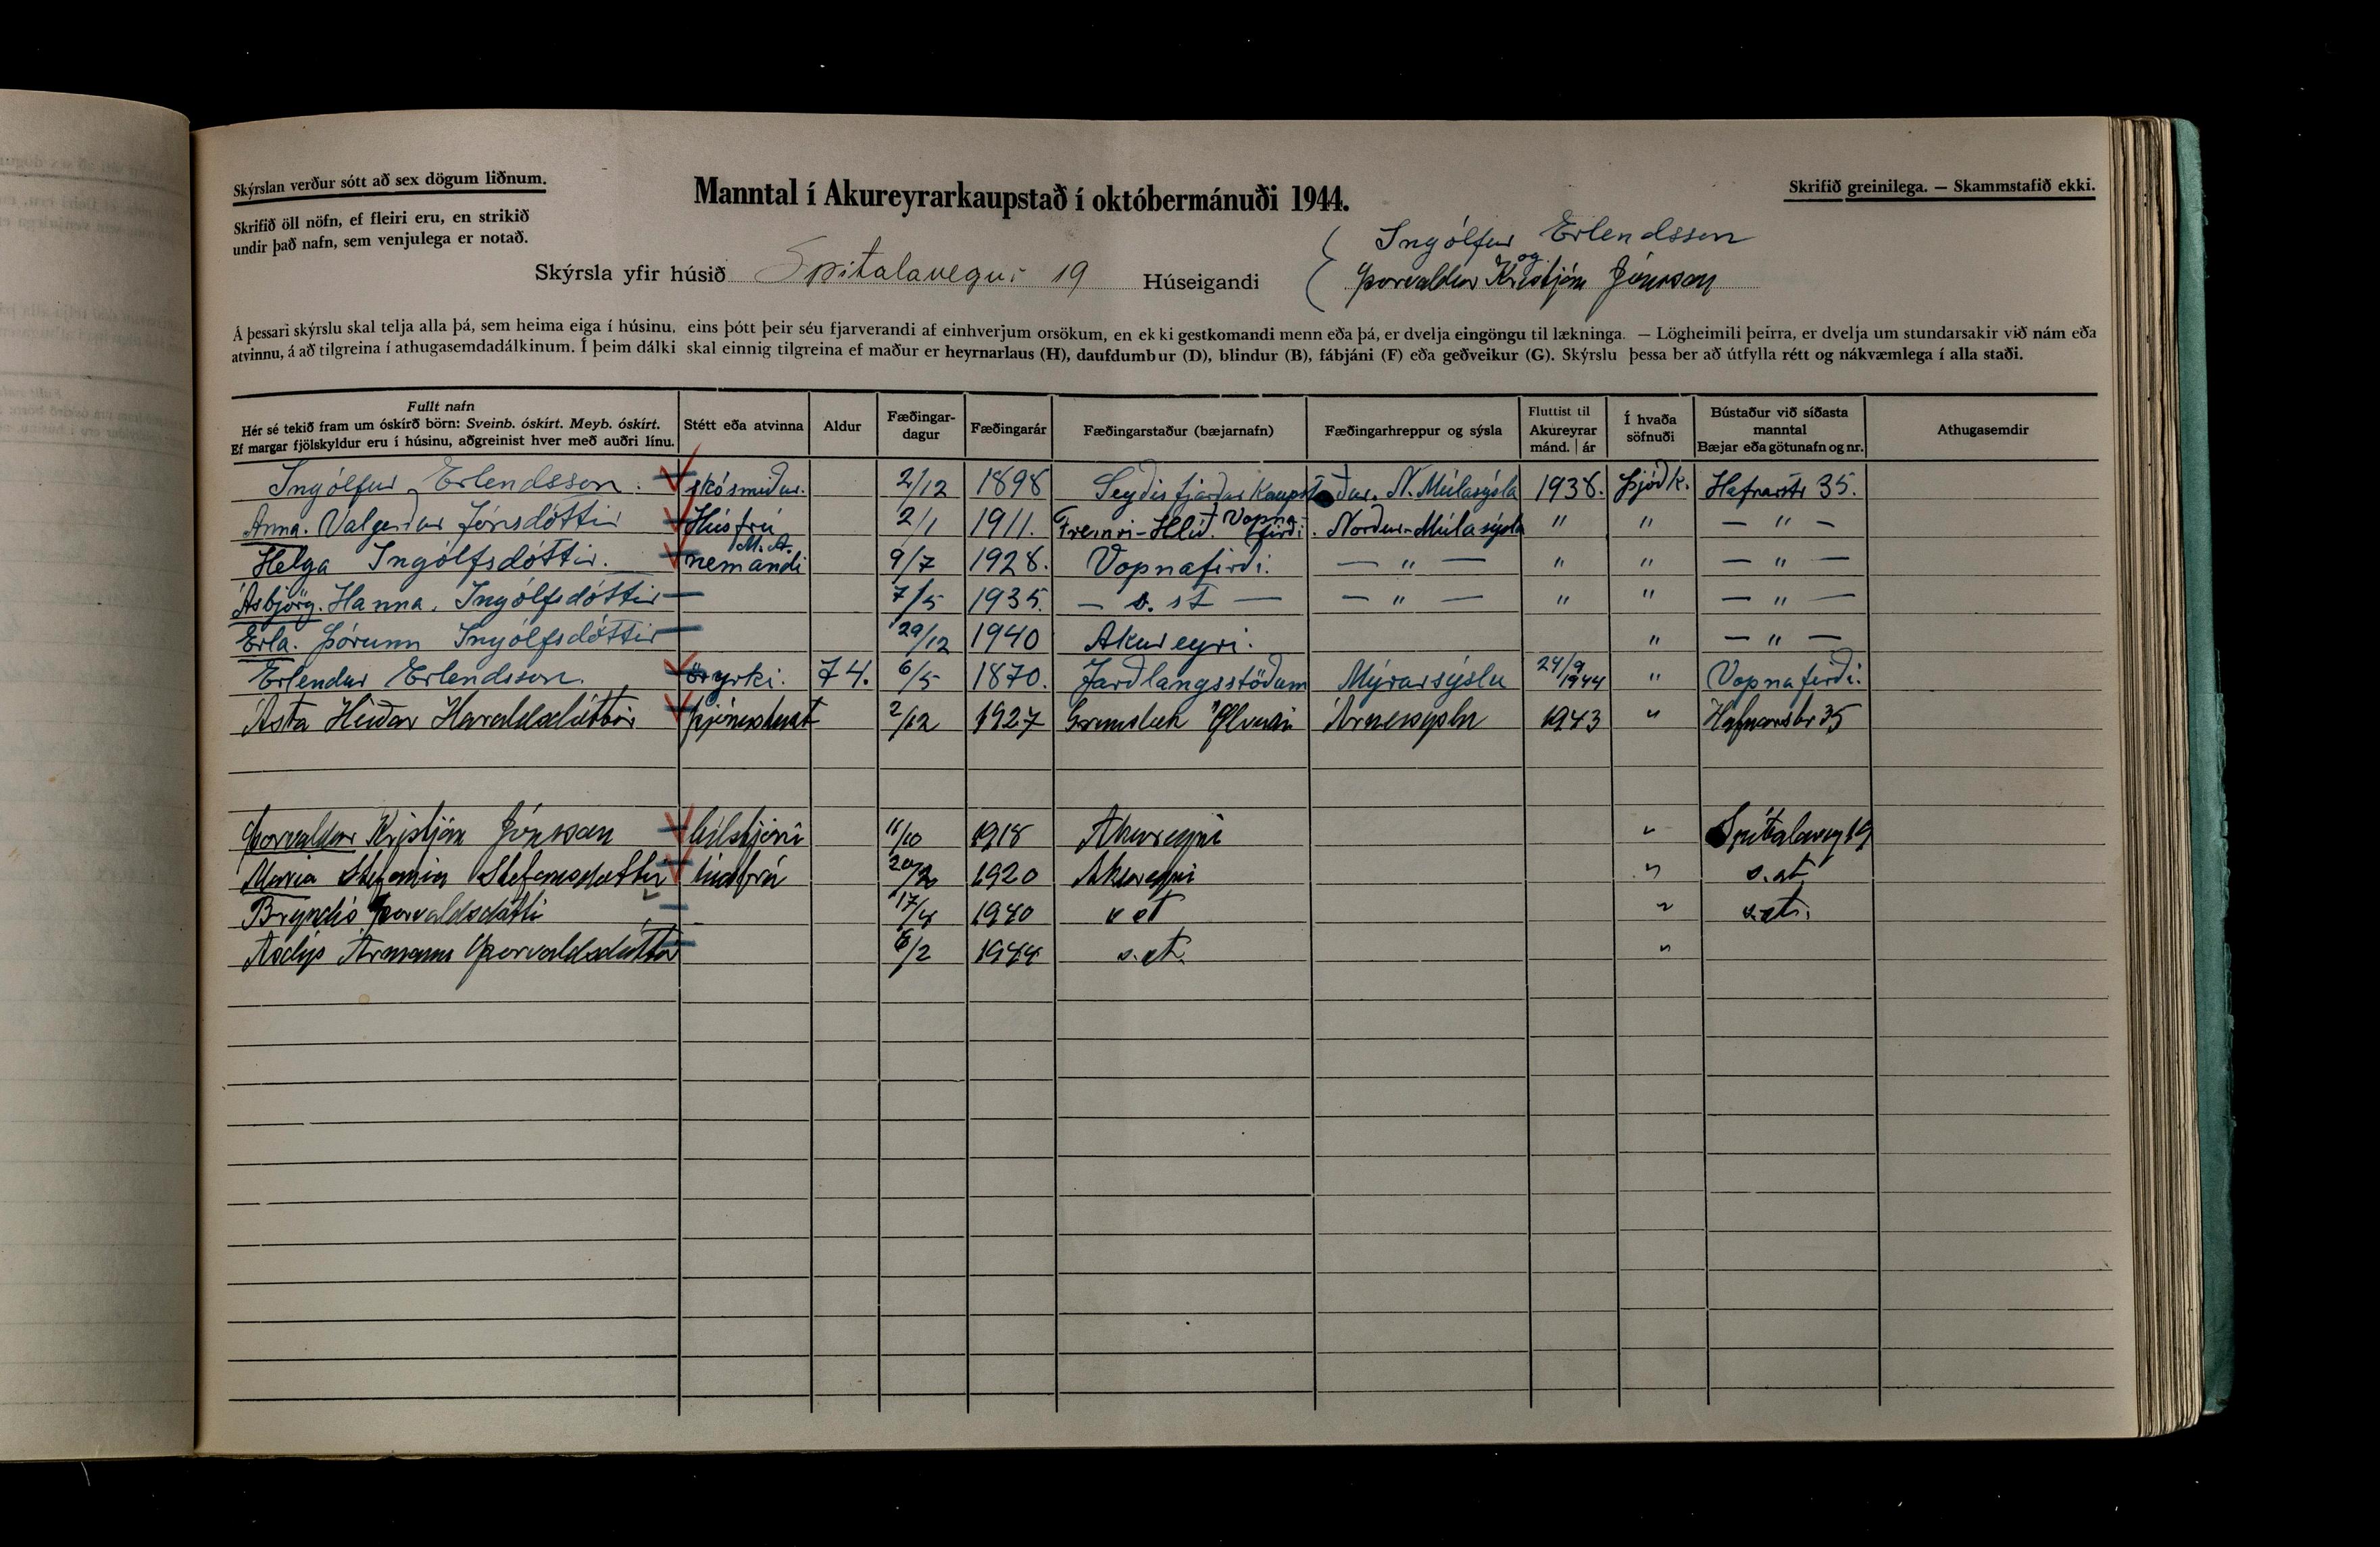 Skýrslan verður sótt að sex dögum liðnum.
Skrifið öll nöfn, ef fleiri eru, en strikið
undir það nafn, sem venjulega er notað.
Manntal í Akureyrarkaupstað í októbermánuði 1944.
Skrifið greinilega. — Skammstafið ekki.
Skýrsla yfir húsið Spítalavegur 19 Húseigandi
Ingólfur Erlendsson
og
Þorvaldur Kristján Jónsson
Á þessari skýrslu skal telja alla þá, sem heima eiga í húsinu, eins þótt þeir séu fjarverandi af einhverjum orsökum, en ekki gestkomandi menn eða þá, er dvelja eingöngu til lækninga. — Lögheimili þeirra, er dvelja um stundarsakir við nám eða
atvinnu, á að tilgreina í athugasemdadálkinum. Í þeim dálki skal einnig tilgreina ef maður er heyrnarlaus (H), daufdumbur (D), blindur (B), fábjáni (F) eða geðveikur (G). Skýrslu þessa ber að útfylla rétt og nákvæmlega í alla staði.
Fullt nafn
Hér sé tekið fram um óskírð börn: Sveinb. óskírt. Meyb. óskírt.
Ef margar fjölskyldur eru í húsinu, aðgreinist hver með auðri línu.
Stétt eða atvinna
Aldur
Fæðingar-
dagur
Fæðingarár
Fæðingarstaður (bæjarnafn)
Fæðingarhreppur og sýsla
Fluttist til
Akureyrar
mánd. | ár
Í hvaða
söfnuði
Bústaður við síðasta
manntal
Bæjar eða götunafn og nr.
Athugasemdir
Ingólfur Erlendsson. skósmiður. 2/12 1898 Seyðisfjarðar Kaupst ður. N. Múlasýsla 1938. Þjóðk. Hafnarstr 35.
Anna. Valgerður Jónsdóttir Húsfrú 2/1 1911. Fremri-Hlíð. Vopnafirði. Norður-Múlasýsla " " — " —
Helga Ingólfsdóttir. nemandi M.A. 9/7 1928. Vopnafirði. — " — " " — " —
Ásbjörg. Hanna. Ingólfsdóttir 7/5 1935. — s. st — — " — " " — " —
Erla. Þórunn Ingólfsdóttir 29/12 1940 Akureyri. " — " —
Erlendur Erlendsson. öryrki. 74. 6/5 1870. Jarðlangsstöðum Mýrarsýslu 24/9 1944 " Vopnafirði.
Ásta Heiðar Haraldsdóttir þjónustust 2/12 1927 Ölvusi Árnessýslu 1943 " Hafnarstr 35
Þorvaldur Kristján Jónsson bílstjóri 11/10 1918 Akureyri " Spítalaveg 19
María Stefanía Stefánsdóttir húsfrú 1920 Akureyri " s. st
Bryndís Þorvaldsdótti 17/4 1940 s st " s. st.
Ásdís Ármann Þorvaldsdóttir 1944 s. st. "